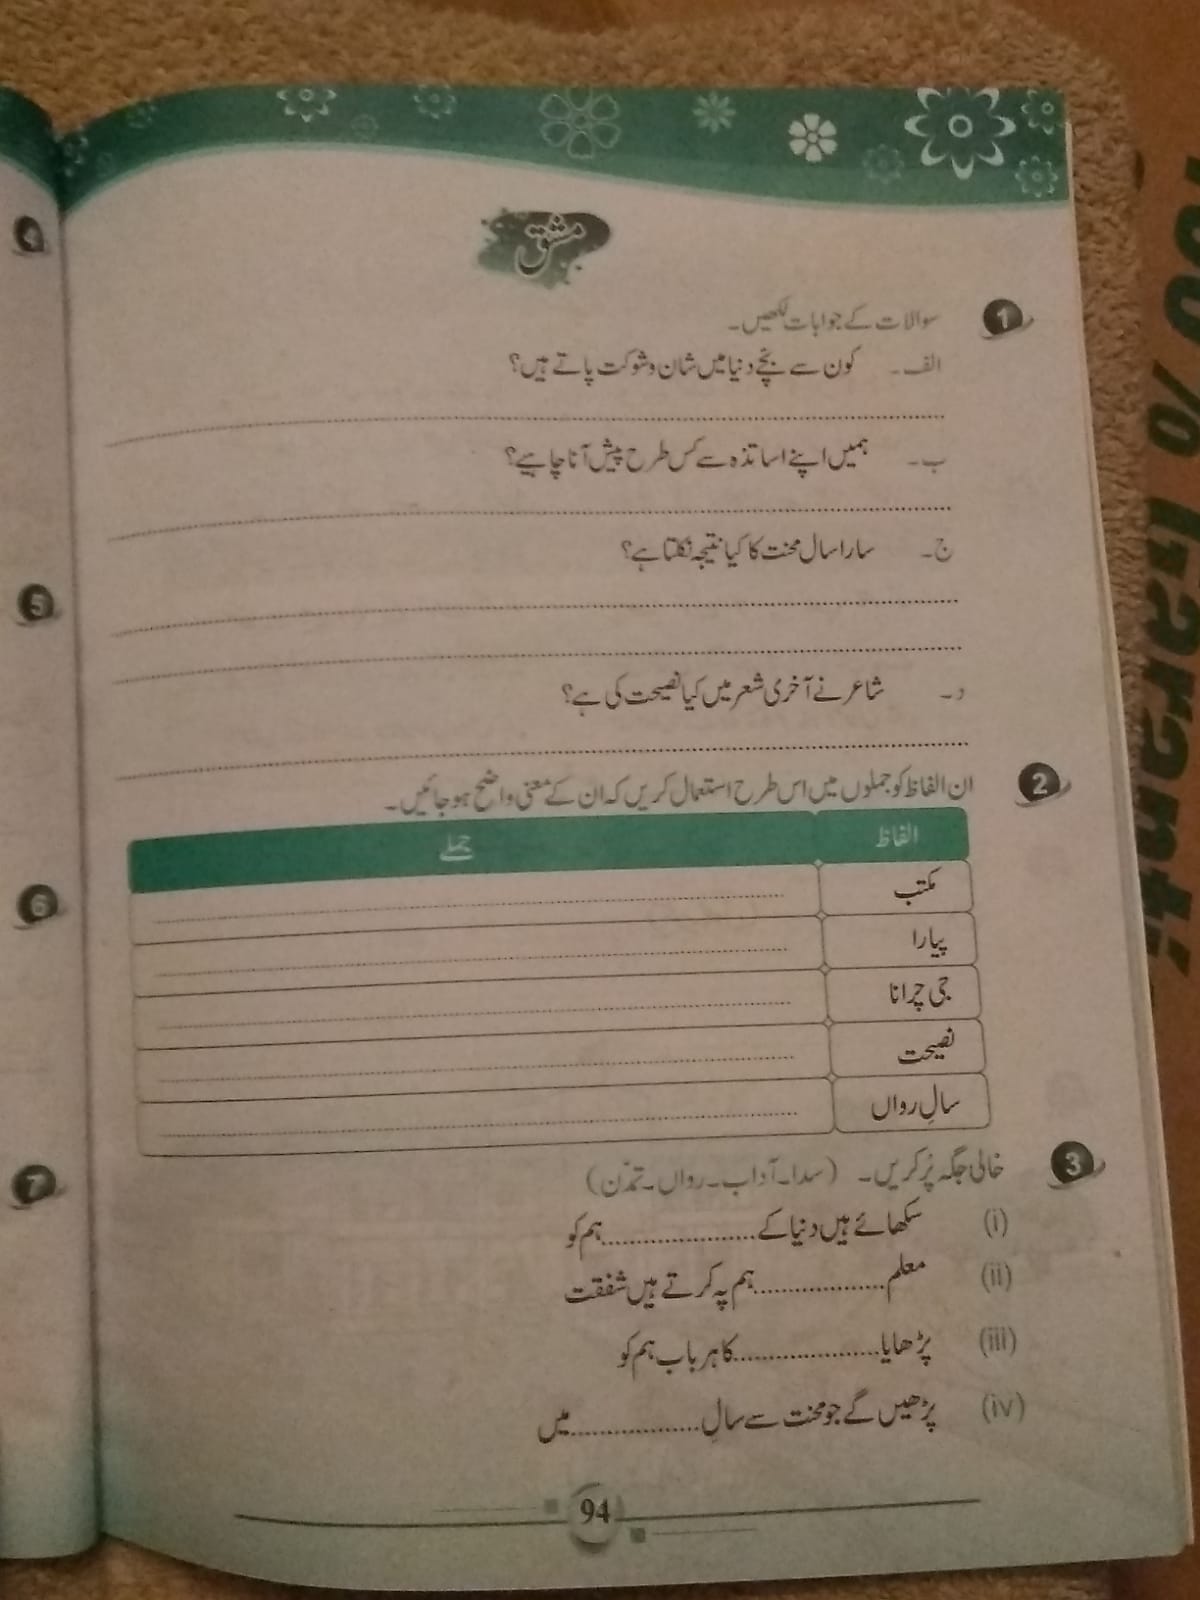 مشق
1 سوالات کے جوابات لکھیں۔
الف۔ کون سے بچے دنیا میں شان و شوکت پاتے ہیں؟
ب۔ ہمیں اپنے اساتذہ سے کس طرح پیش آنا چاہیے؟
ج۔ سارا سال محنت کا کیا نتیجہ نکلتا ہے؟
د۔ شاعر نے آخری شعر میں کیا نصیحت کی ہے؟
2 ان الفاظ کو جملوں میں اس طرح استعمال کریں کہ ان کے معنی واضح ہو جائیں۔
الفاظ جملے
مکتب
پیارا
جی چرانا
نصیحت
سالِ رواں
3 خالی جگہ پُر کریں۔ (سدا۔ آداب۔ رواں۔ تمدّن)
(i) سکھائے ہیں دنیا کے ..................... ہم کو
(ii) معلم .................. ہم پہ کرتے ہیں شفقت
(iii) پڑھایا ..................... کا ہر باب ہم کو
(iv) پڑھیں گے جو محنت سے سالِ .................. میں
94
4
5
6
7
100% Guarant